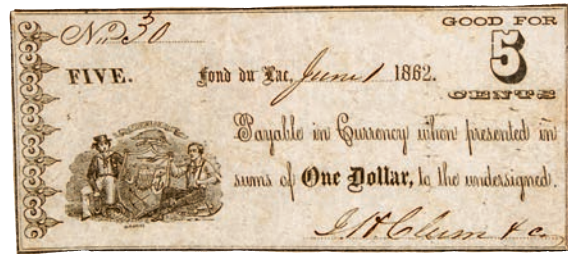 No 30
GOOD FOR
5
CENTS
FIVE.
Fond du Lac, June 1 1862.
Payable in Currency when presented in
sums of One Dollar, to the undersigned.
J. H. Clum & co